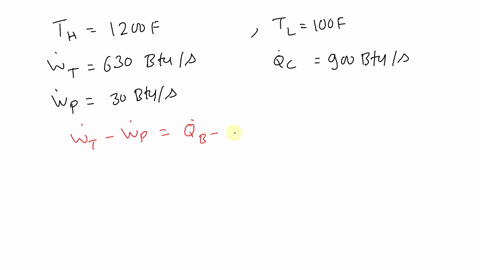 T_H = 1200F , T_L = 100F
Ẇ_T = 630 Btu/s Q̇_C = 900 Btu/s
Ẇ_P = 30 Btu/s
Ẇ_T - Ẇ_P = Q̇_B -